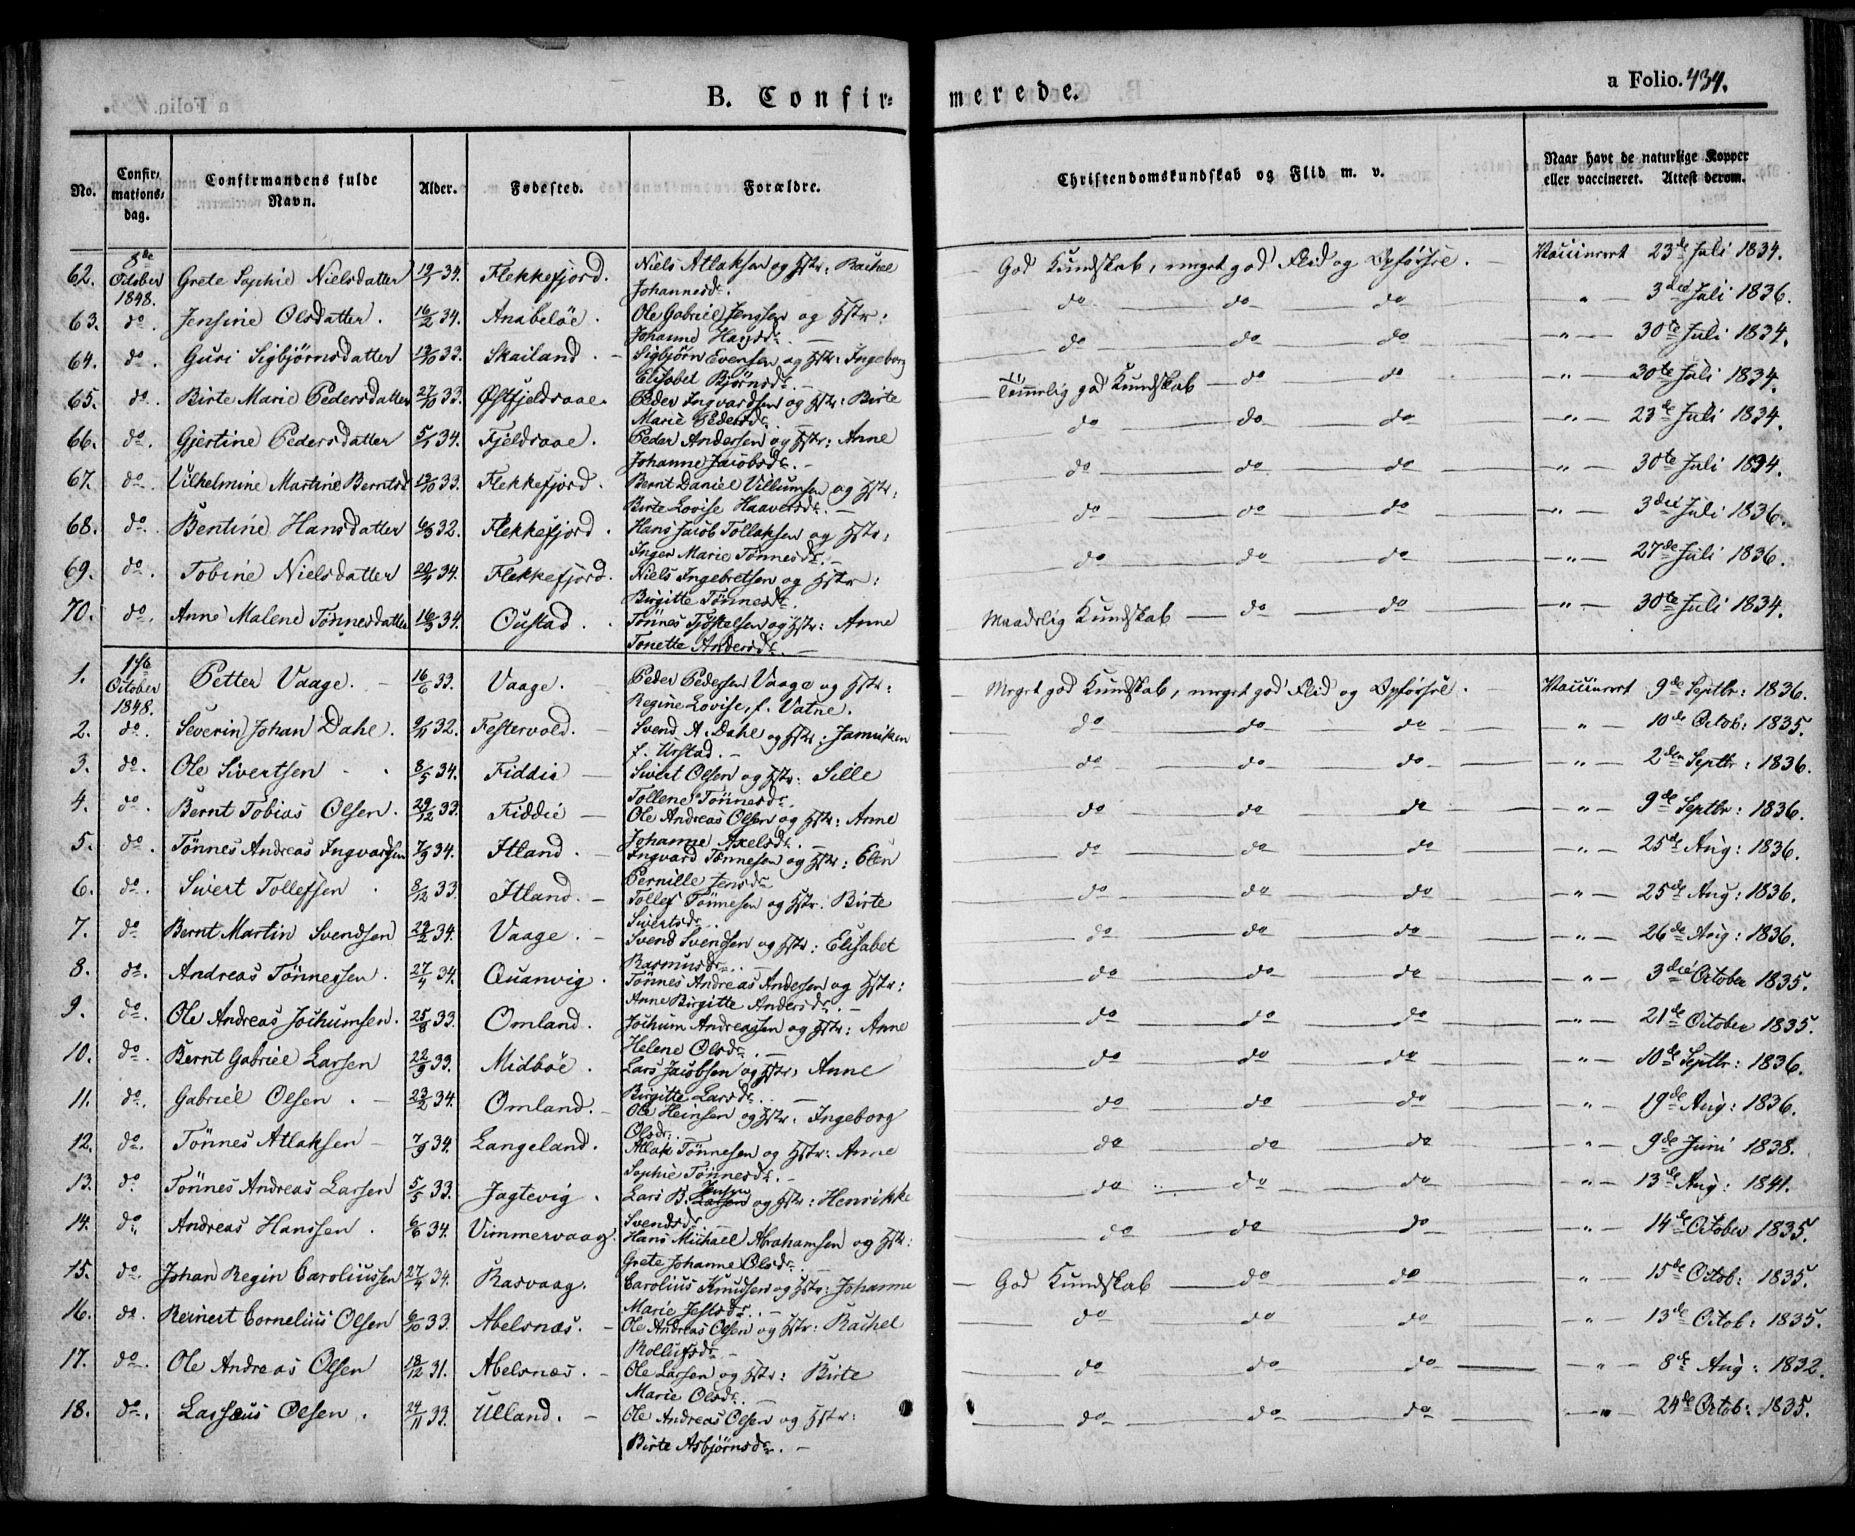 B. Confir-
merede.
a Folio. 434.
No.
Confir-
mations-
dag.
Confirmandens fulde
Navn.
Alder.
Fødested.
Forældre.
Christendomskundskab og Flid m. v.
Naar havt de naturlige Kopper
eller vaccineret. Attest derom.
62. 8de October 1848. Grete Sophie Nielsdatter 34. Flekkefjord. Niels Atlaksen og Hstr: Rachel Johannesdr. God Kundskab, meget god Flid og Opførsel. Vaccineert 23de Juli 1834.
63. do. Jensine Olsdatter. 16/2 34. Anabeløe. Ole Gabriel Jenssen og Hstr: Johanne Hansdr. do do do " 3die Juli 1836.
64. do. Guri Sigbjørnsdatter 33. Skailand. Sigbjørn Evensen og Hstr: Ingeborg Elisabet Bjørnsdr. do do do " 30te Juli 1834.
65. do. Birte Marie Pedersdatter 27/10 33. Østfjeldsaae. Peder Ingvardsen og Hstr: Birte Marie Pedersdr. Temmelig god Kundskab do do " 30te Juli 1834.
66. do. Gjertine Pedersdatter 34. Fjeldsaae. Peder Andersen og Hstr: Anne Johanne Jacobsdr. do do do " 23de Juli 1834.
67. do. Vilhelmine Martine Berntsd 33. Flekkefjord. Bernt Daniel Villumsen og Hstr: Birte Lovise Haaversdr. do do do " 30te Juli 1834.
68. do. Bentine Hansdatter 32. Flekkefjord. Hans Jacob Tollaksen og Hstr: Inger Marie Tønnesdr. do do do " 3die Juli 1836.
69. do. Tobine Nielsdatter 34. Flekkefjord. Niels Ingebretsen og Hstr: Birgitte Tønnesdr. do do do " 27de Juli 1836.
70. do. Anne Malene Tønnesdatter 16/3 34. Oustad. Tønnes Tjøstelsen og Hstr: Anne Tonette Andersdr. Maadelig Kundskab do do " 30te Juli 1834.
1. October 1848. Petter Vaage. 16/6 33. Vaage. Peder Pedersen Vaage og Hstr: Regine Lovise, f. Vatne. Meget god Kundskab, meget god Flid og Opførsel. Vaccineert 9de Septbr: 1836.
2. do. Severin Johan Dahl. 9/11 32. Festervold. Svend A. Dahl og Hstr: f. Urstad. do do do " 10de Octob: 1835.
3. do. Ole Sivertsen 8/5 34. Fiddie Sivert Olsen og Hstr: Sille Tollene Tønnesdr. do do do " 2den Septbr: 1836.
4. do. Bernt Tobias Olsen. 29/12 33. Fiddie Ole Andreas Olsen og Hstr: Anne Johanne Axelsdr. do do do " 9de Septbr: 1836.
5. do. Tønnes Andreas Ingvardsen 7/3 34. Itland. Ingvard Tønnesen og Hstr: Elen Pernille Jensdr do do do " 25de Aug: 1836.
6. do. Sivert Tollefsen 8/12 33. Itland. Tollef Tønnesen og Hstr. Birte Sivertsdr. do do do " 25de Aug: 1836.
7. do Bernt Martin Svendsen 23/2 34. Vaage. Svend Svendsen og Hstr: Elisabet Rasmusdr. do do do " 26de Aug: 1836.
8. do. Andreas Tønnessen. 27/4 34. Quanvig. Tønnes Andreas Andersen og Hstr: Anne Birgitte Andersdr. do do do " 3die October 1835.
9. do. Ole Andreas Jochumsen. 25/8 33. Omland. Jochum Andreassen og Hstr: Anne Helene Olsdr. do do do " 21de October 1835.
10. do. Bernt Gabriel Larsen 22/9 33. Midbøe. Lars Jacobsen og Hstr: Anne Birgitte Larsdr. do do do " 10de Septbr: 1836.
11. do. Gabriel Olsen. 23/2 34. Omland. Ole Heinsen og Hstr: Ingeborg Olsdr. do do do " 19de Aug: 1836.
12. do. Tønnes Atlaksen 7/9 34. Langeland. Atlak Tønnesen og Hstr: Anne Sophie Tønnesdr. do do do " 9de Juni 1838.
13. do Tønnes Andreas Larsen 5/5 33. Jagtevig. Lars B. Larsen Jensen og Hstr: Henrikke Svendsdr. do do do " 13de Aug: 1841.
14. do. Andreas Hanssen. 6/6 34. Vimmervaag. Hans Michael Abrahamsen og Hstr: Grete Johanne Olsdr. do do do " 14de October 1835.
15. do. Johan Regin Caroliussen 27/4 34. Rasvaag. Carolius Knudsen og Hstr: Johanne Marie Jeslsdr. God Kundskab do do " 15de Octob: 1835.
16. do. Reinert Cornelius Olsen 6/10 33. Abelsnæs. Ole Andreas Olsen og Hstr: Rachel Rollufsdr. do do do " 13de Octob: 1835.
17. do. Ole Andreas Olsen 18/12 31. Abelsnæs. Ole Larsen og Hstr: Birte Marie Olsdr. do do do " 8de Aug: 1832.
18. do. Lassæus Olsen. 24/11 33. Ulland. Ole Andreas Olsen og Hstr: Birte Asbjørnsdr. do do do " 24de Octob: 1835.